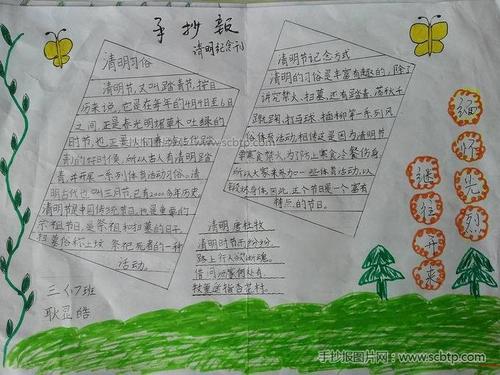 手抄报
清明纪念刊
清明习俗
清明节,又叫踏青节,按阳
历来说,它是在每年的4月4日至6日
之间,正是春光明媚草木吐绿的
时节,也正是人们春游(古代踏
青)的好时候,所以古人有清明踏
青,并开展一系列体育活动习俗。清
明古代也叫三月节,已有2000多年历史
清明节是中国传统节日,也是重要的
示祖节日,是祭祖和扫墓的日子
扫墓俗称上坟 祭祀死者的一种
活动。
三(7)班
清明节记念方式
清明的习俗是丰富有趣的,除了
讲究禁火、扫墓,还有踏青、荡秋千
蹴鞠、打马球、插柳等一系列风
俗体育活动,相传这是因为清明节
要寒食禁火,为了防止寒食冷餐伤身,
所以大家来参加一些体育活动,以
锻炼身体因此,这个节日是一个富有
特点的节日。
清明 唐杜牧
清明时节雨纷纷
路上行人欲断魂。
借问酒家何处有,
牧童遥指杏花村。
缅怀先烈
继往开来
www.scbtp.com
手抄报图片网:www.scbtp.com